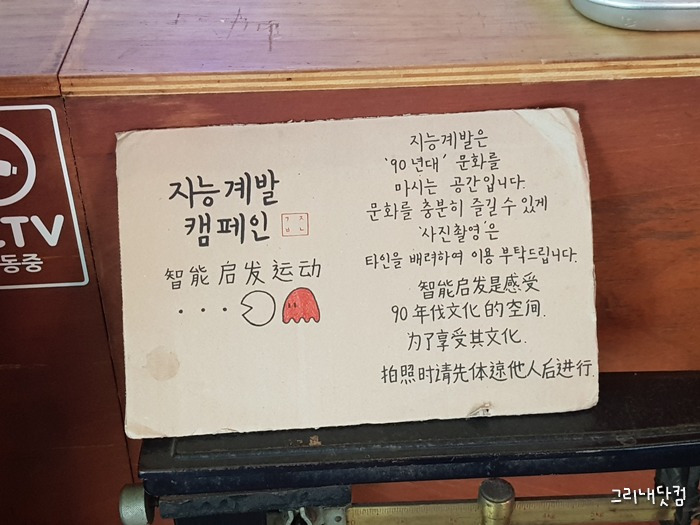 지능계발
캠페인
智能启发运动
지능계발은
'90년대' 문화를
마시는 공간입니다.
문화를 충분히 즐길 수 있게
'사진촬영'은
타인을 배려하여 이용 부탁드립니다.
智能启发是感受
90年代文化的空间.
为了享受其文化.
拍照时请先体谅他人后进行.
TV
동중
그리내닷컴